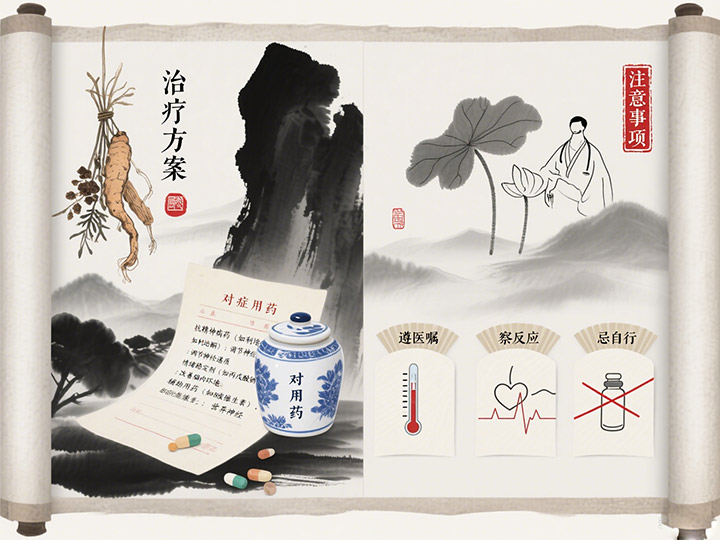 治疗方案
对症用药
抗精神病药（如利培
如利哈酮）：调节神经
：调节神经递质
情绪稳定剂（如丙戊酸钠
：改善脑内环境。
辅助用药（如B族维生素），
：营养神经
对用药
注意事项
遵医嘱
察反应
忌自行